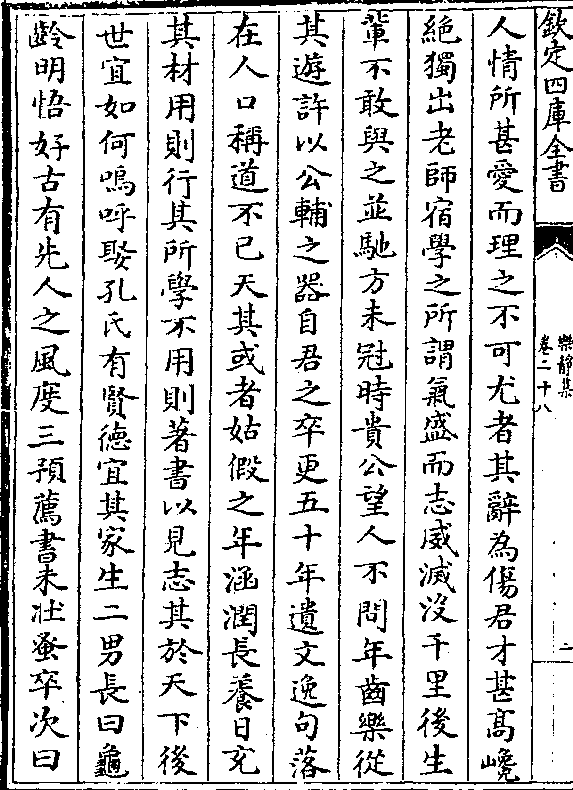 欽定四庫全書
樂靜集
卷二十八
二
人情所甚愛而理之不可尤者其辭為傷君才甚髙巉
絶獨出老師宿學之所謂氣盛而志威滅没千里後生
輩不敢與之並馳方未冠時貴公望人不問年齒樂從
其遊許以公輔之器自君之卒更五十年遺文逸句落
在人口稱道不已天其或者姑假之年涵潤長養日充
其材用則行其所學不用則著書以見志其於天下後
世宜如何嗚呼娶孔氏有賢德宜其家生二男長曰龜
齡明悟好古有先人之風度三預薦書未壯蚤卒次曰